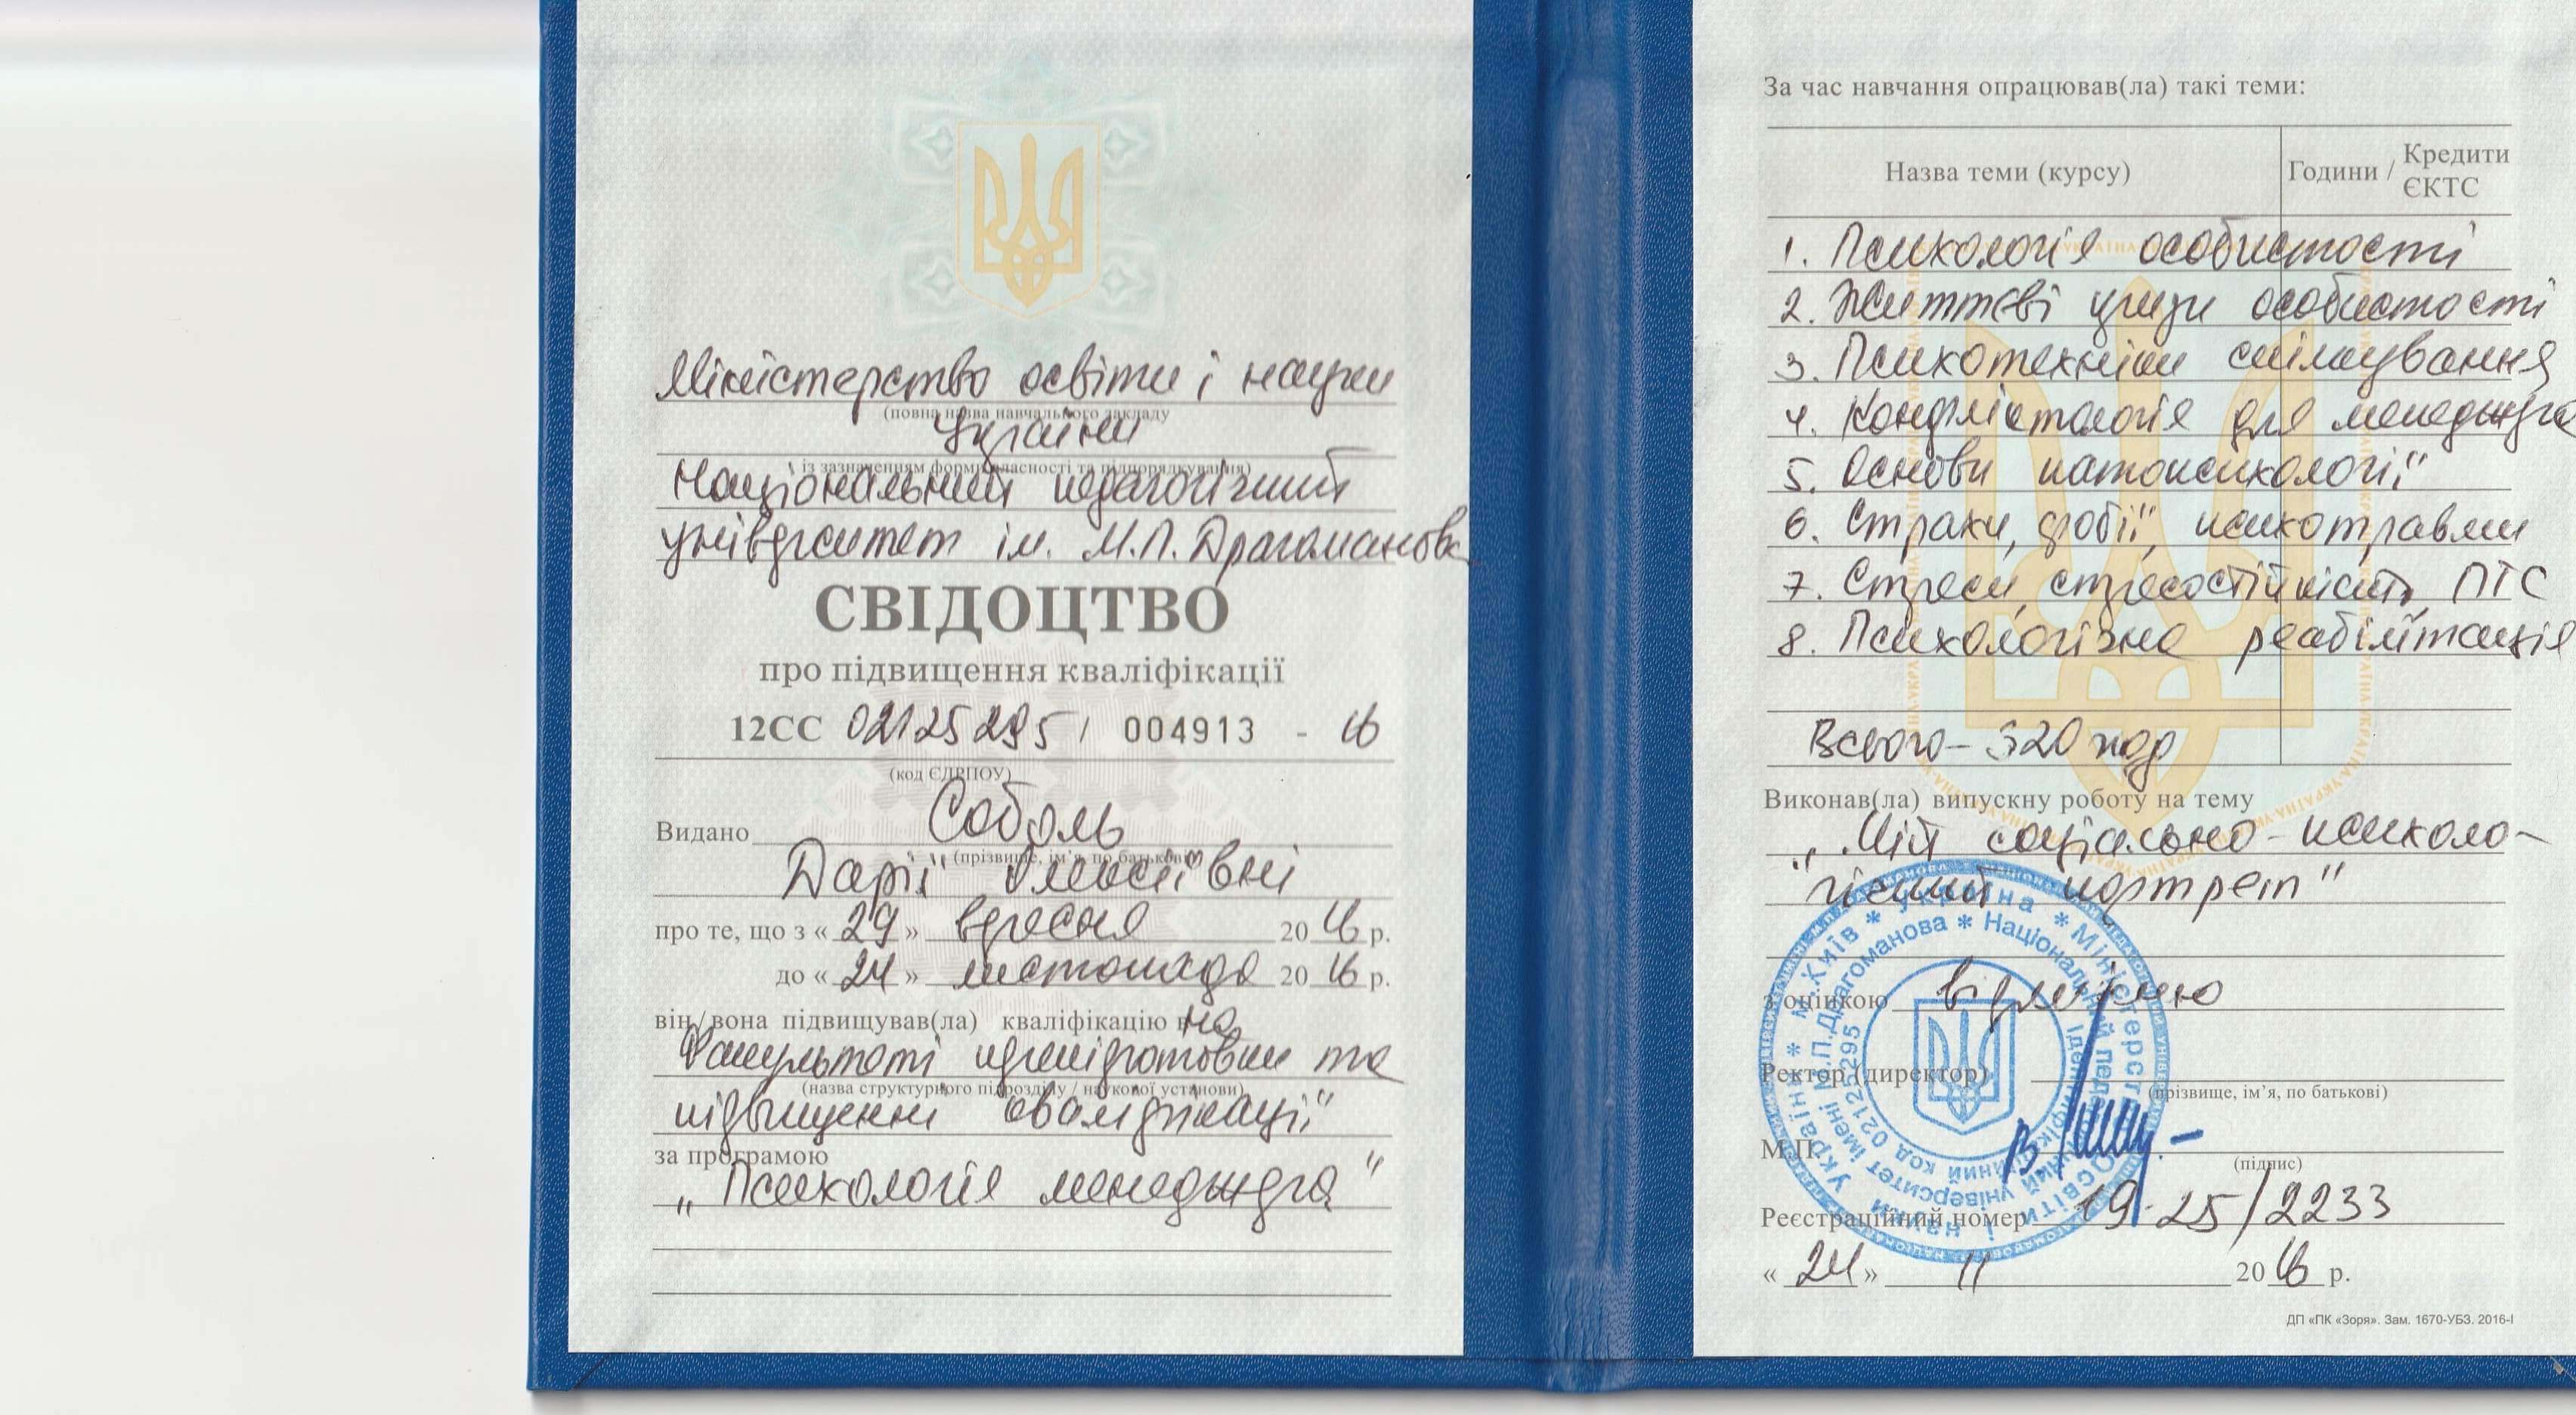 Міністерство освіти і науки
(повна назва навчального закладу
України
із зазначенням форми власності та підпорядкування)
Національний педагогічний
університет ім. М.П. Драгоманова
СВІДОЦТВО
про підвищення кваліфікації
12СС 02125295 / 004913 - 16
(код ЄДРПОУ)
Видано Соболь
(прізвище, ім’я, по батькові)
Дарії Олексіївні
про те, що з « 29 » вересня 20 16 р.
до « 24 » листопада 20 16 р.
він/вона підвищував(ла) кваліфікацію на
Факультеті перепідготовки та
(назва структурного підрозділу / наукової установи)
підвищення кваліфікації
за програмою
„Психологія менеджера"
За час навчання опрацював(ла) такі теми:
Назва теми (курсу) Години / Кредити ЄКТС
1. Психологія особистості
2. Життєві кризи особистості
3. Психотехніки спілкування
4. Конфліктологія для менеджера
5. Основи патопсихології
6. Страхи, фобії, психотравми
7. Стреси, стресостійкість, ПТС
8. Психологічна реабілітація
Всього - 320 год
Виконав(ла) випускну роботу на тему
„Мій соціально-психоло-
гічний портрет"
з оцінкою відмінно
Ректор (директор)
(прізвище, ім’я, по батькові)
М.П.
(підпис)
Реєстраційний номер 19-25/2233
« 24 » 11 20 16 р.
ДП «ПК «Зоря». Зам. 1670-УБЗ. 2016-І
Україна * Міністерство освіти і науки України * м. Київ *
Національний педагогічний університет імені М.П.Драгоманова *
Ідентифікаційний код 02125295